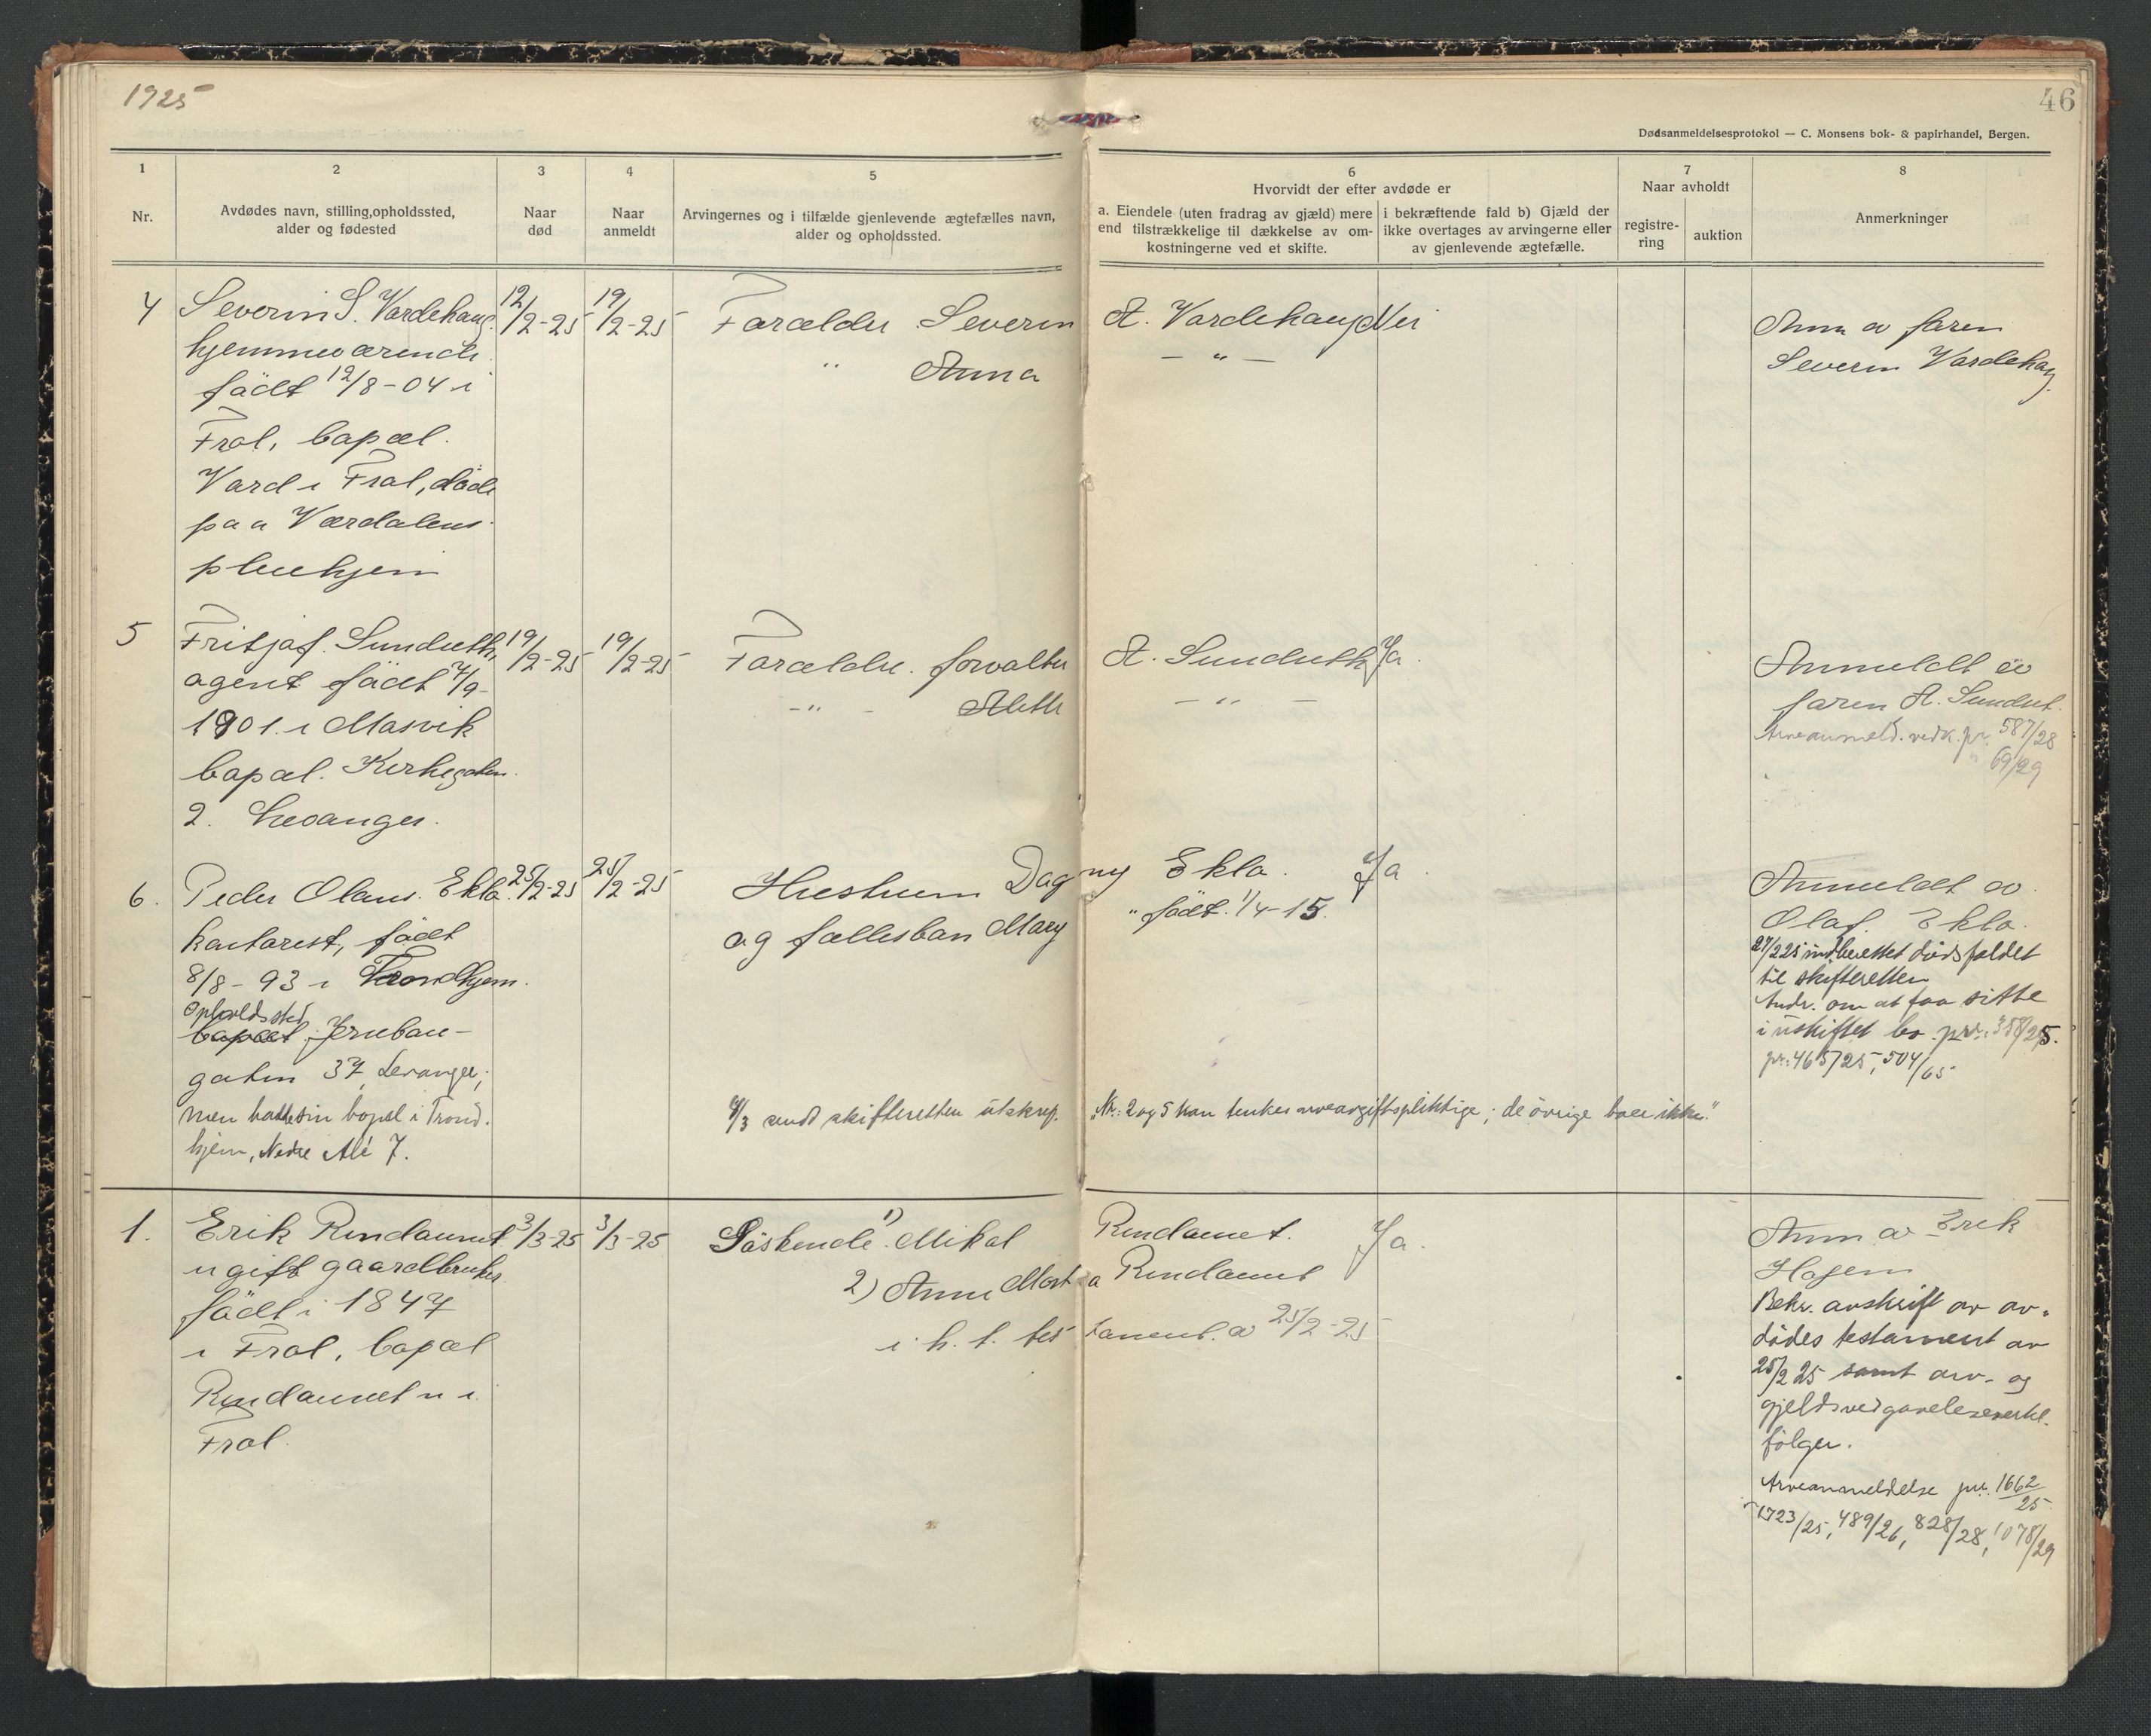 1925
46
Dødsanmeldelsesprotokol — C. Monsens bok- & papirhandel, Bergen.
1
2
3
4
5
6
7
8
Nr.
Avdødes navn, stilling, opholdssted,
alder og fødested
Naar
død
Naar
anmeldt
Arvingernes og i tilfælde gjenlevende ægtefælles navn,
alder og opholdssted.
Hvorvidt der efter avdøde er
a. Eiendele (uten fradrag av gjæld) mere
end tilstrækkelige til dækkelse av om-
kostningerne ved et skifte.
i bekræftende fald b) Gjæld der
ikke overtages av arvingerne eller
av gjenlevende ægtefælle.
Naar avholdt
registre-
ring
auktion
Anmerkninger
4
Severin S. Vardehaug
hjemmeværende
födt 12/8-04 i
Frol, bopæl
Vard i Frol, döde
paa Værdalens
pleiehjem
12/2-25
19/2-25
Forældre Severin A. Vardehaug
" Anna — " —
Nei
Anm av faren
Severin Vardehaug
5
Fritjof Sundseth,
agent födt 4/9-
1901 i Masvik
bopæl. Kirkegaten
2. Levanger.
19/2-25
19/2-25
Forældre. forvalter A. Sundseth
-"- Aleth - " -
Ja.
Anmeldt av
faren A. Sundset.
Arveanmeld. vedk. pr. 587/28
69/29
6.
Peder Olaus Eklo.
kontorist, födt
8/8-93 i Trondhjem.
Opholdssted
bopæl Jernban-
gaten 37, Levanger,
men hadde sin bopæl i Trond-
hjem, Nedre Alé 7.
25/2-25
25/2-25
Hustruen Dagny Eklo.
og fællesbarn Mary " födt. 1/4-15.
Ja.
Anmeldt av
Olaf Eklo.
27/2 25 indberettet dödsfaldet
til skifteretten
Andr. om at faa sitte
i uskiftet bo pr. 358/25.
pr. 465/25, 504/65
4/3 sendt skifteretten utskrep. „Nr. 2 og 5 kan tenkes arveavgiftspliktige; de övrige boer ikke."
1.
Erik Rindaunet
ugift gaardbruker
födt i 1847
i Frol, bopæl
Rindaunet n i
Frol.
3/3-25
3/3-25
Söskende 1) Mikal Rindaunet.
2) Anne Marta Rindaunet
i h. t. testament av 25/2-25
Ja.
Anm av Erik
Hagen
Bekr. avskrift av av-
dödes testament av
25/2 25 samt arv- og
gjeldsvedgaaelseserkl.
fölger.
Arveanmeldelse pr. 1662/25
1723/25, 489/26, 828/28, 1078/29